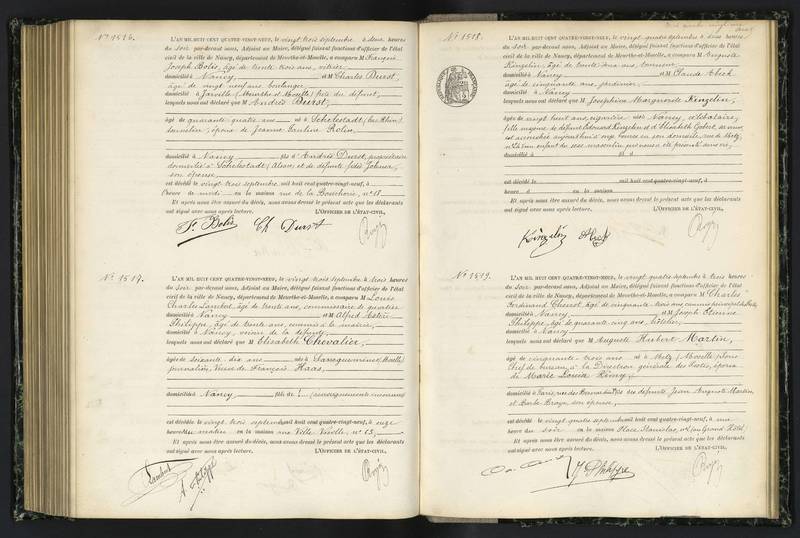 N° 1516.
L'AN MIL HUIT CENT QUATRE-VINGT-NEUF, le vingt trois septembre à deux heures
du soir par-devant nous, Adjoint au Maire, délégué faisant fonctions d'officier de l'état
civil de la ville de Nancy, département de Meurthe-et-Moselle, a comparu M François
Joseph Bolis, âgé de trente trois ans, vitrier
domicilié à Nancy et M Charles Durst,
âgé de vingt neuf ans boulanger
domicilié à Jarville (Meurthe et Moselle) frère du défunt,
lesquels nous ont déclaré que M Andrès Durst,
âgé de quarante quatre ans né à Schelestadt (Bas Rhin)
tonnelier, époux de Jeanne Pauline Rolin,
domicilié à Nancy fils d'Andrès Durst, propriétaire
domicilié à Schelestadt (Alsace) et de défunte
son épouse
est décédé le vingt trois septembre, mil huit cent quatre-vingt-neuf, à
heures de midi en la maison rue de la Boucherie, n° 18
Et après nous être assuré du décès, nous avons dressé le présent acte que les déclarants
ont signé avec nous après lecture. L'OFFICIER DE L'ÉTAT-CIVIL,
Ch Durst
N° 1517.
L'AN MIL HUIT CENT QUATRE-VINGT-NEUF, le vingt trois septembre à trois heures
du soir par-devant nous, Adjoint au Maire, délégué faisant fonctions d'officier de l'état
civil de la ville de Nancy, département de Meurthe-et-Moselle, a comparu M Louis
Charles Lambert, âgé de trente ans, commissaire de quartier
domicilié à Nancy et M Alfred
Philippe, âgé de trente ans, commis à la mairie,
domicilié à Nancy, voisin de la défunte,
lesquels nous ont déclaré que M Elisabeth Chevalier,
âgée de soixante dix ans née à Sarreguemines (Moselle)
journalière, Veuve de François Haas,
domiciliée à Nancy fille de (renseignements inconnus)
est décédée le vingt trois septembre mil huit cent quatre-vingt-neuf, à onze
heures du matin en la maison rue Ville Vieille, n° 13,
Et après nous être assuré du décès, nous avons dressé le présent acte que les déclarants
ont signé avec nous après lecture. L'OFFICIER DE L'ÉTAT-CIVIL,
Lambert
A Philippe
N° 1518.
L'AN MIL HUIT CENT QUATRE-VINGT-NEUF, le vingt quatre septembre à deux heures
du soir par-devant nous, Adjoint au Maire, délégué faisant fonctions d'officier de l'état
civil de la ville de Nancy, département de Meurthe-et-Moselle, a comparu M Auguste
Kinzelin, âgé de trente ans,
domicilié à Nancy et M Claude
âgé de cinquante ans, jardinier,
domicilié à Nancy
lesquels nous ont déclaré que M Joséphine Marguerite Kinzelin,
âgée de vingt huit ans, cigarière née Nancy, célibataire,
fille majeure de défunt Edouard Kinzelin et d'Elisabeth
est accouchée aujourd'hui à onze heures en son domicile, rue de Metz,
enfant du sexe masculin qui nous a été présenté sans vie,
domicilié à fil d
est décédé le mil huit cent quatre-vingt-neuf, à
heure d en la maison
Et après nous être assuré du décès, nous avons dressé le présent acte que les déclarants
ont signé avec nous après lecture. L'OFFICIER DE L'ÉTAT-CIVIL,
Kinzelin
N° 1519.
L'AN MIL HUIT CENT QUATRE-VINGT-NEUF, le vingt quatre septembre à trois heures
du soir par-devant nous, Adjoint au Maire, délégué faisant fonctions d'officier de l'état
civil de la ville de Nancy, département de Meurthe-et-Moselle, a comparu M Charles
Ferdinand âgé de cinquante trois ans commis principal
domicilié à Nancy et M Joseph Etienne
Philippe, âgé de quarante cinq ans, hôtelier,
domicilié à Nancy
lesquels nous ont déclaré que M Auguste Hubert Martin,
âgé de cinquante trois ans né à Metz (Moselle) Sous
Chef de bureau à la Direction générale des Postes, époux
de Marie Louise Rémy
domicilié à Paris, rue fils des défunts Jean Auguste Martin
et Barbe son épouse,
est décédé le vingt quatre septembre mil huit cent quatre-vingt-neuf, à une
heure du soir en la maison Place Stanislas, n° 2 (au Grand Hôtel)
Et après nous être assuré du décès, nous avons dressé le présent acte que les déclarants
ont signé avec nous après lecture. L'OFFICIER DE L'ÉTAT-CIVIL,
J Philippe